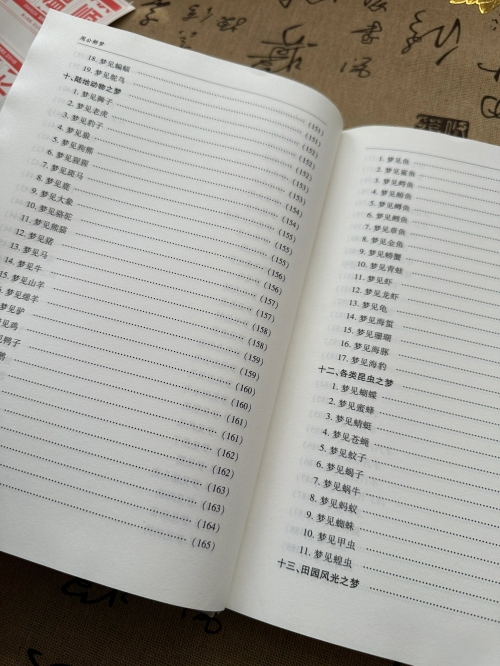 周公解梦
18. 梦见蝙蝠 (151)
19. 梦见鸵鸟 (151)
十、陆地动物之梦 (152)
1. 梦见狮子 (152)
2. 梦见老虎 (152)
3. 梦见豹子 (153)
4. 梦见狼 (153)
5. 梦见狗熊 (154)
6. 梦见猩猩 (154)
7. 梦见斑马 (154)
8. 梦见鹿 (155)
9. 梦见大象 (155)
10. 梦见骆驼 (155)
11. 梦见熊猫 (156)
12. 梦见猪 (156)
13. 梦见马 (157)
14. 梦见牛 (157)
15. 梦见山羊 (158)
梦见绵羊 (158)
梦见驴 (159)
梦见鸡 (159)
见鸭子 (160)
鹅 (160)
(161)
(161)
(162)
(162)
(163)
(163)
(164)
(165)
1. 梦见鱼
2. 梦见鲨鱼
3. 梦见鳄鱼
4. 梦见鲸鱼
5. 梦见鳄鱼
6. 梦见鳄鱼
7. 梦见章鱼
8. 梦见金鱼
9. 梦见螃蟹
10. 梦见青蛙
11. 梦见虾
12. 梦见龙虾
13. 梦见龟
14. 梦见海蜇
15. 梦见珊瑚
16. 梦见海豚
17. 梦见海豹
十二、各类昆虫之梦
1. 梦见蝴蝶
2. 梦见蜜蜂
3. 梦见蜻蜓
4. 梦见苍蝇
5. 梦见蚊子
6. 梦见蝎子
7. 梦见蜗牛
8. 梦见蚂蚁
9. 梦见蜘蛛
10. 梦见甲虫
11. 梦见蝗虫
十三、田园风光之梦